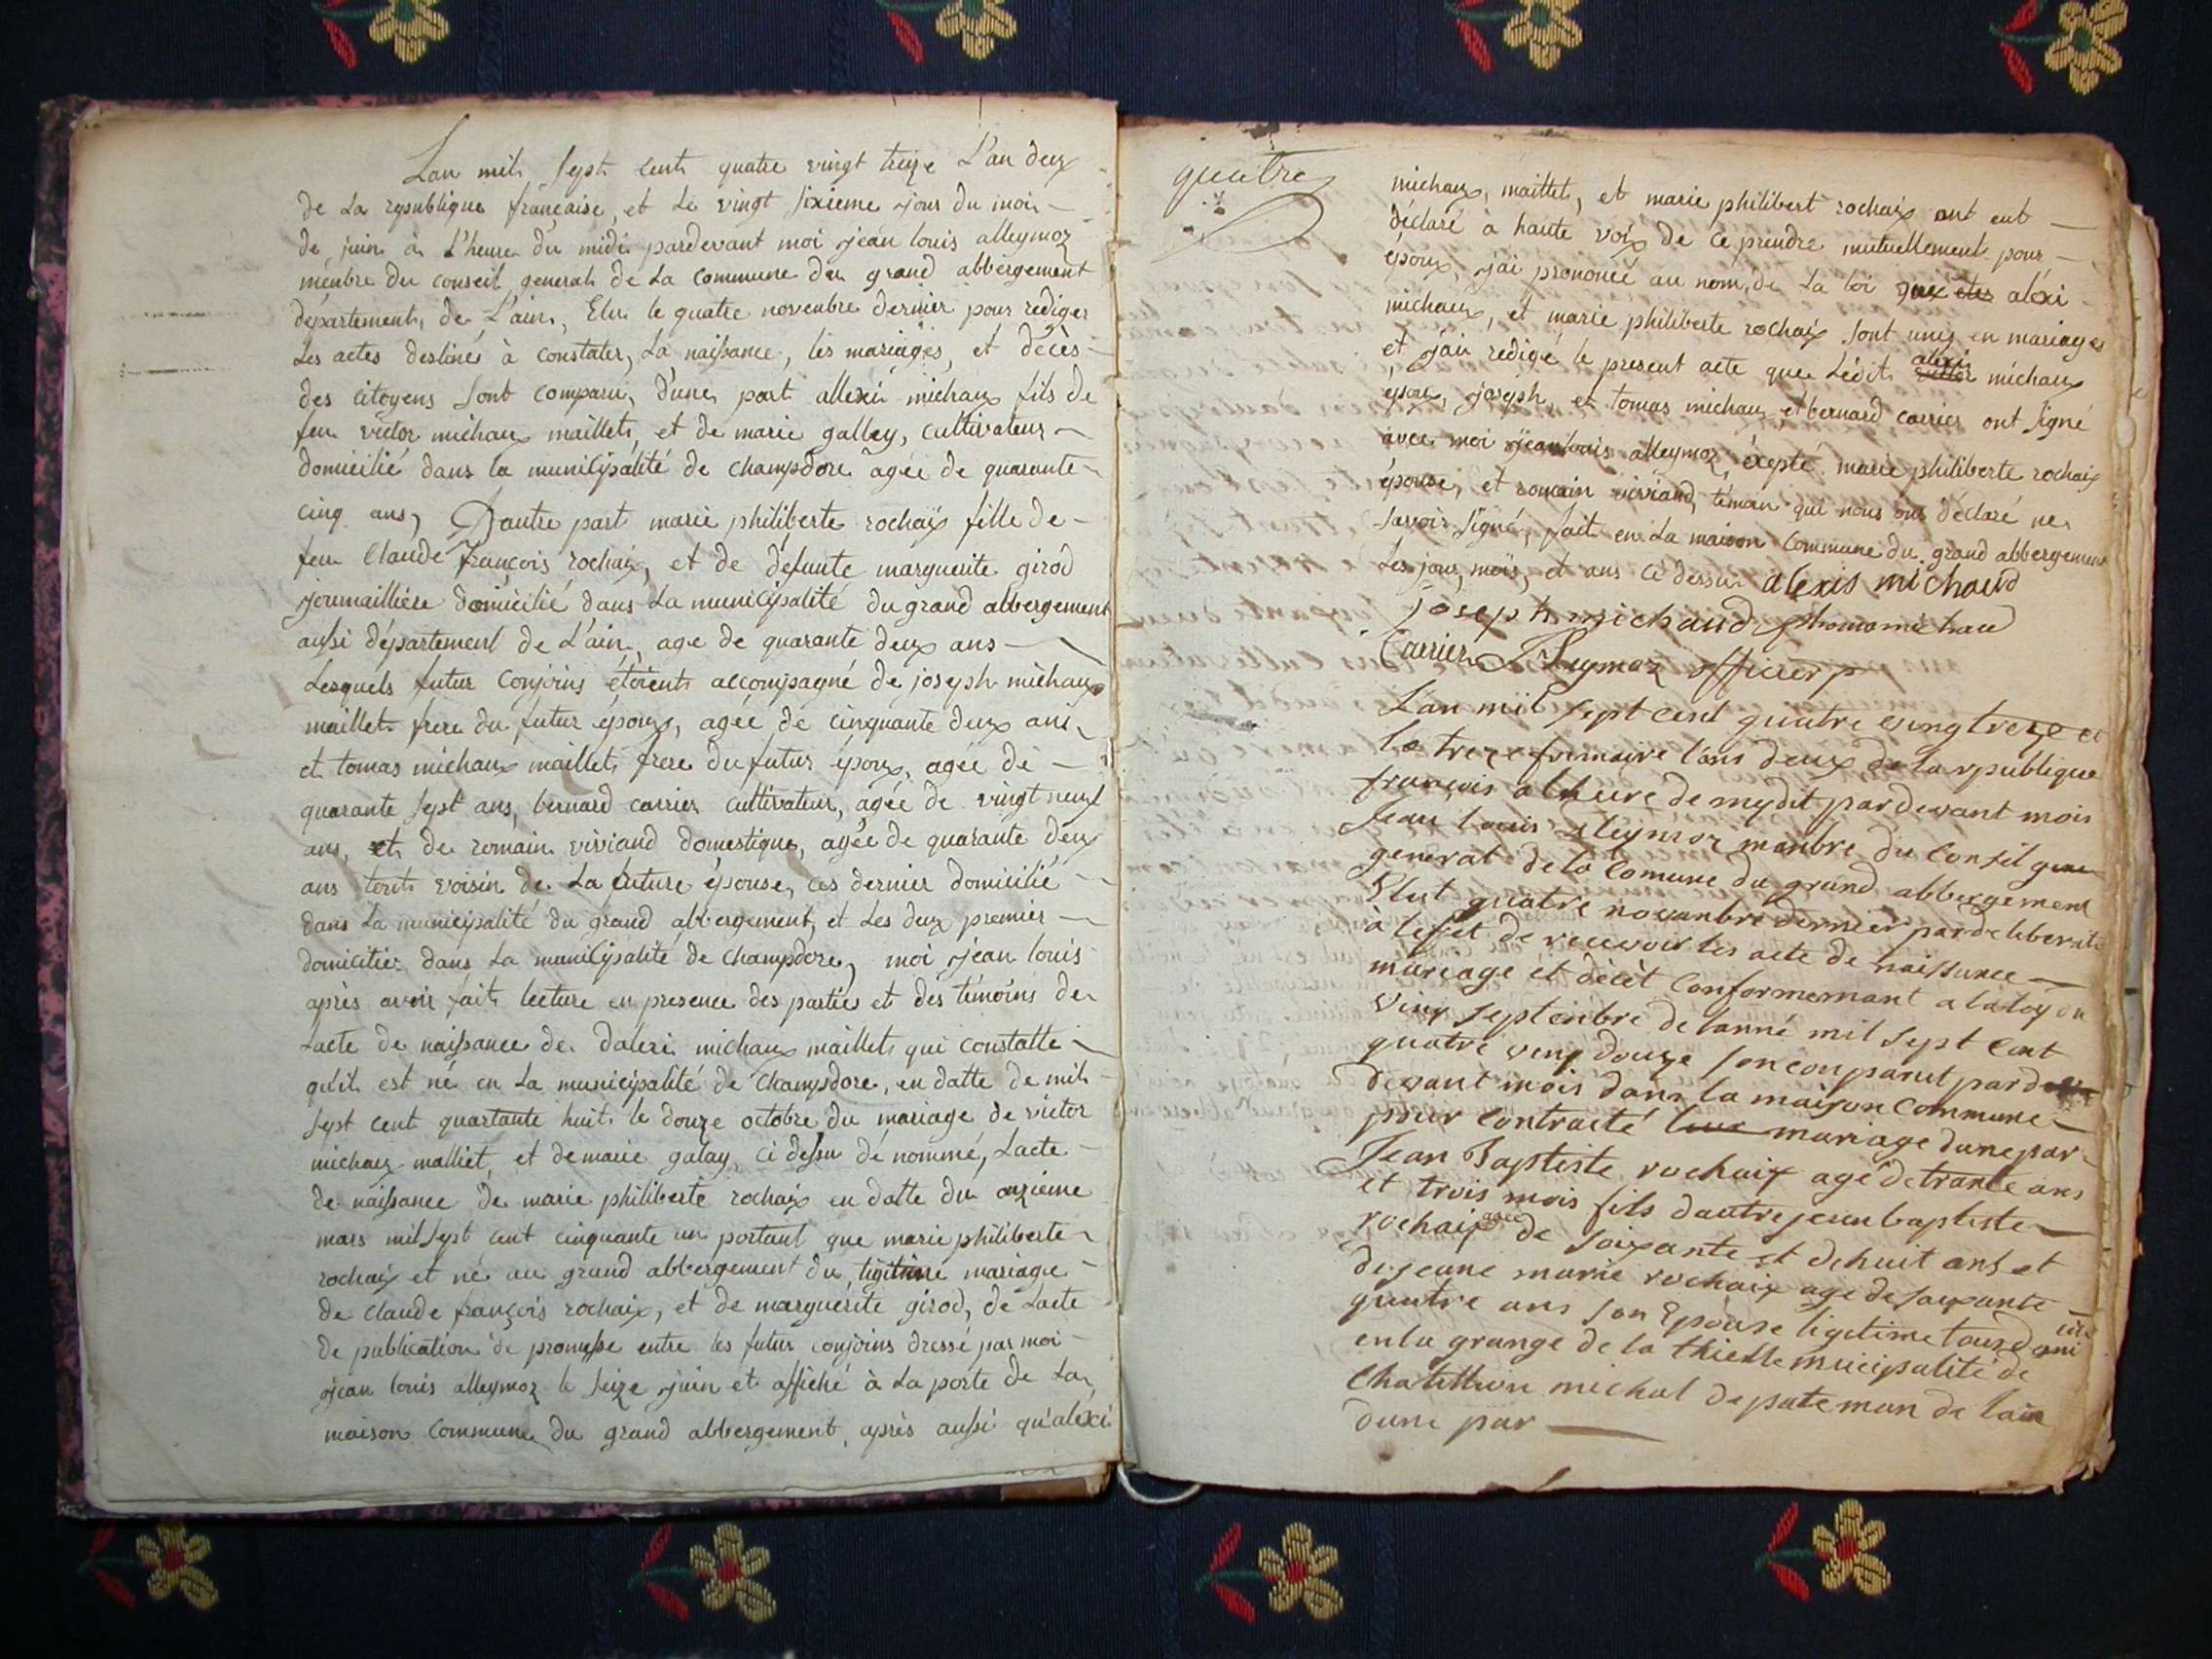 Lan mil sept cent quatre vingt treize L'an deux
de la republique française, et le vingt sixieme jour du mois
de juin à l'heure du midi pardevant moi jean louis alleymoz
menbre du conseil general de la commune du grand abbergement
département de L'ain, Elu le quatre novenbre dernier pour rediger
les actes destinés à constater, la naissance, les mariages, et décès
des citoyens sont comparu, d'une part allexi michaux fils de
feu victor michaux maillet, et de marie galley, cultivateur
domicilié dans la municipalité de champdore agée de quarante
cinq ans, D'autre part marie philiberte rochaix fille de
feu Claude françois rochaix, et de defunte marguerite girod
journaillière domicilié dans la municipalité du grand abbergement
aussi département de L'ain, age de quarante deux ans
Lesquels futur conjoins étoient accompagné de joseph michaux
maillet frere du futur époux, agée de cinquante deux ans
et tomas michaux maillet frere du futur époux, agée de
quarante sept ans, bernard carrier cultivateur, agée de vingt neuf
ans, et de romain viviand domestique, agée de quarante deux
ans touts voisin de la future épouse, ces dernier domicilié
dans la municipalité du grand abbergement, et les deux premier
domicilier dans la municipalité de champdore, moi jean louis
après avoir fait lecture en presence des parties et des témoins de
lacte de naissance de dalexi michaux maillet qui constatte
quil est né en la municipalité de champdore, en datte de mil
sept cent quarante huit le douze octobre du mariage de victor
michaux malliet, et de marie galay, ci dessu dénommé, Lacte
de naissance de marie philiberte rochaix en datte du onzieme
mars mil sept cent cinquante un portant que marie philiberte
rochaix et né au grand abbergement du légitime mariage
de claude françois rochaix, et de marguérite girod, de lacte
de publication de promesse entre les futur conjoins dressé par moi
jean louis alleymoz le seize juin et affiché à la porte de la
maison commune du grand abbergement, après aussi qu'alexi
quatre
michaux, maillet, et marie philibert rochaix ont eut
déclaré à haute voix de ce prendre mutuellement pour
époux, jai prononcé au nom de la loi que alexi
michaux, et marie philiberte rochaix sont unis en mariages
et jai redigé le present acte que lédit alexi michaux
époux, joseph, et tomas michaux et bernard carrier ont signé
avec moi jean louis alleymoz, éxepté marie philiberte rochaix
épouse, et romain viviand, témoin qui nous ont déclaré ne
savoir signé, fait en la maison commune du grand abbergement
Les jour, mois, et ans ci dessu alexis michaud
joseph michaud thoma michau
Carrier Alleymoz officier p
L'an mil sept cent quatre vingtreze et
le treze frimaire l'ans deux de la rpublique
françois a lheure de mydit par devant mois
Jean louis aleymoz manbre du Consil
general de la Comune du grand abbergement
Elut quatre novanbre dernier par deliberati
à leffet de recevoir les acte de naissance
mariage et décèt Conformemant a la loy du
vint septenbre de lanné mil sept Cent
quatre vint douze son conparut par
devant mois dans la maison Commune
pour Contracté mariage dune par
Jean Baptiste rochaix agé de trante ans
et trois mois fils dautre jean baptiste
rochaix agée de soixante et dehuit ans et
de jeane marie rochaix age de soixante
quatre ans son Epouse ligitime tous domi cilié
en la grange de la thielle municipalité de
Chatillion michal depateman de lain
dune par